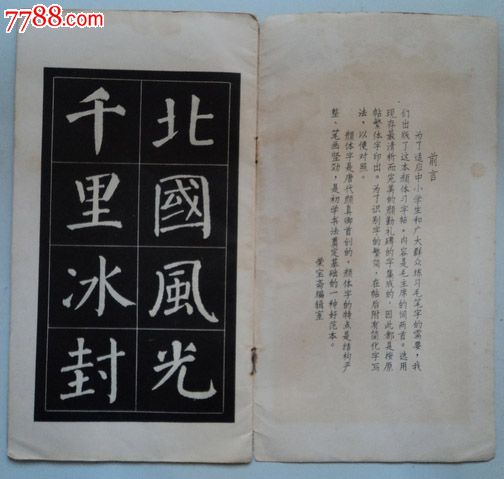 7788.com
前言
为了适应中小学生和广大群众练习毛笔字的需要，我
们出版了这本颜体习字帖。内容是毛主席的词两首。选用
现存最清晰而完美的颜勤礼碑的字集成的，因此都是按原
帖繁体字印出。为了识别字的繁简，在帖后附有简化字写
法，以便对照。
颜体字是唐代颜真卿首创的。颜体字的特点是结构严
整、笔画竖劲，是初学书法奠定基础的一种好范本。
荣宝斋编辑室
北國風光
千里冰封